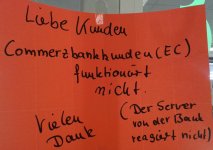 Liebe Kunden
Commerzbankkunden (EC)
funktioniert
nicht.
Vielen
Dank
(Der Server
von der Bank
reagiert nicht)